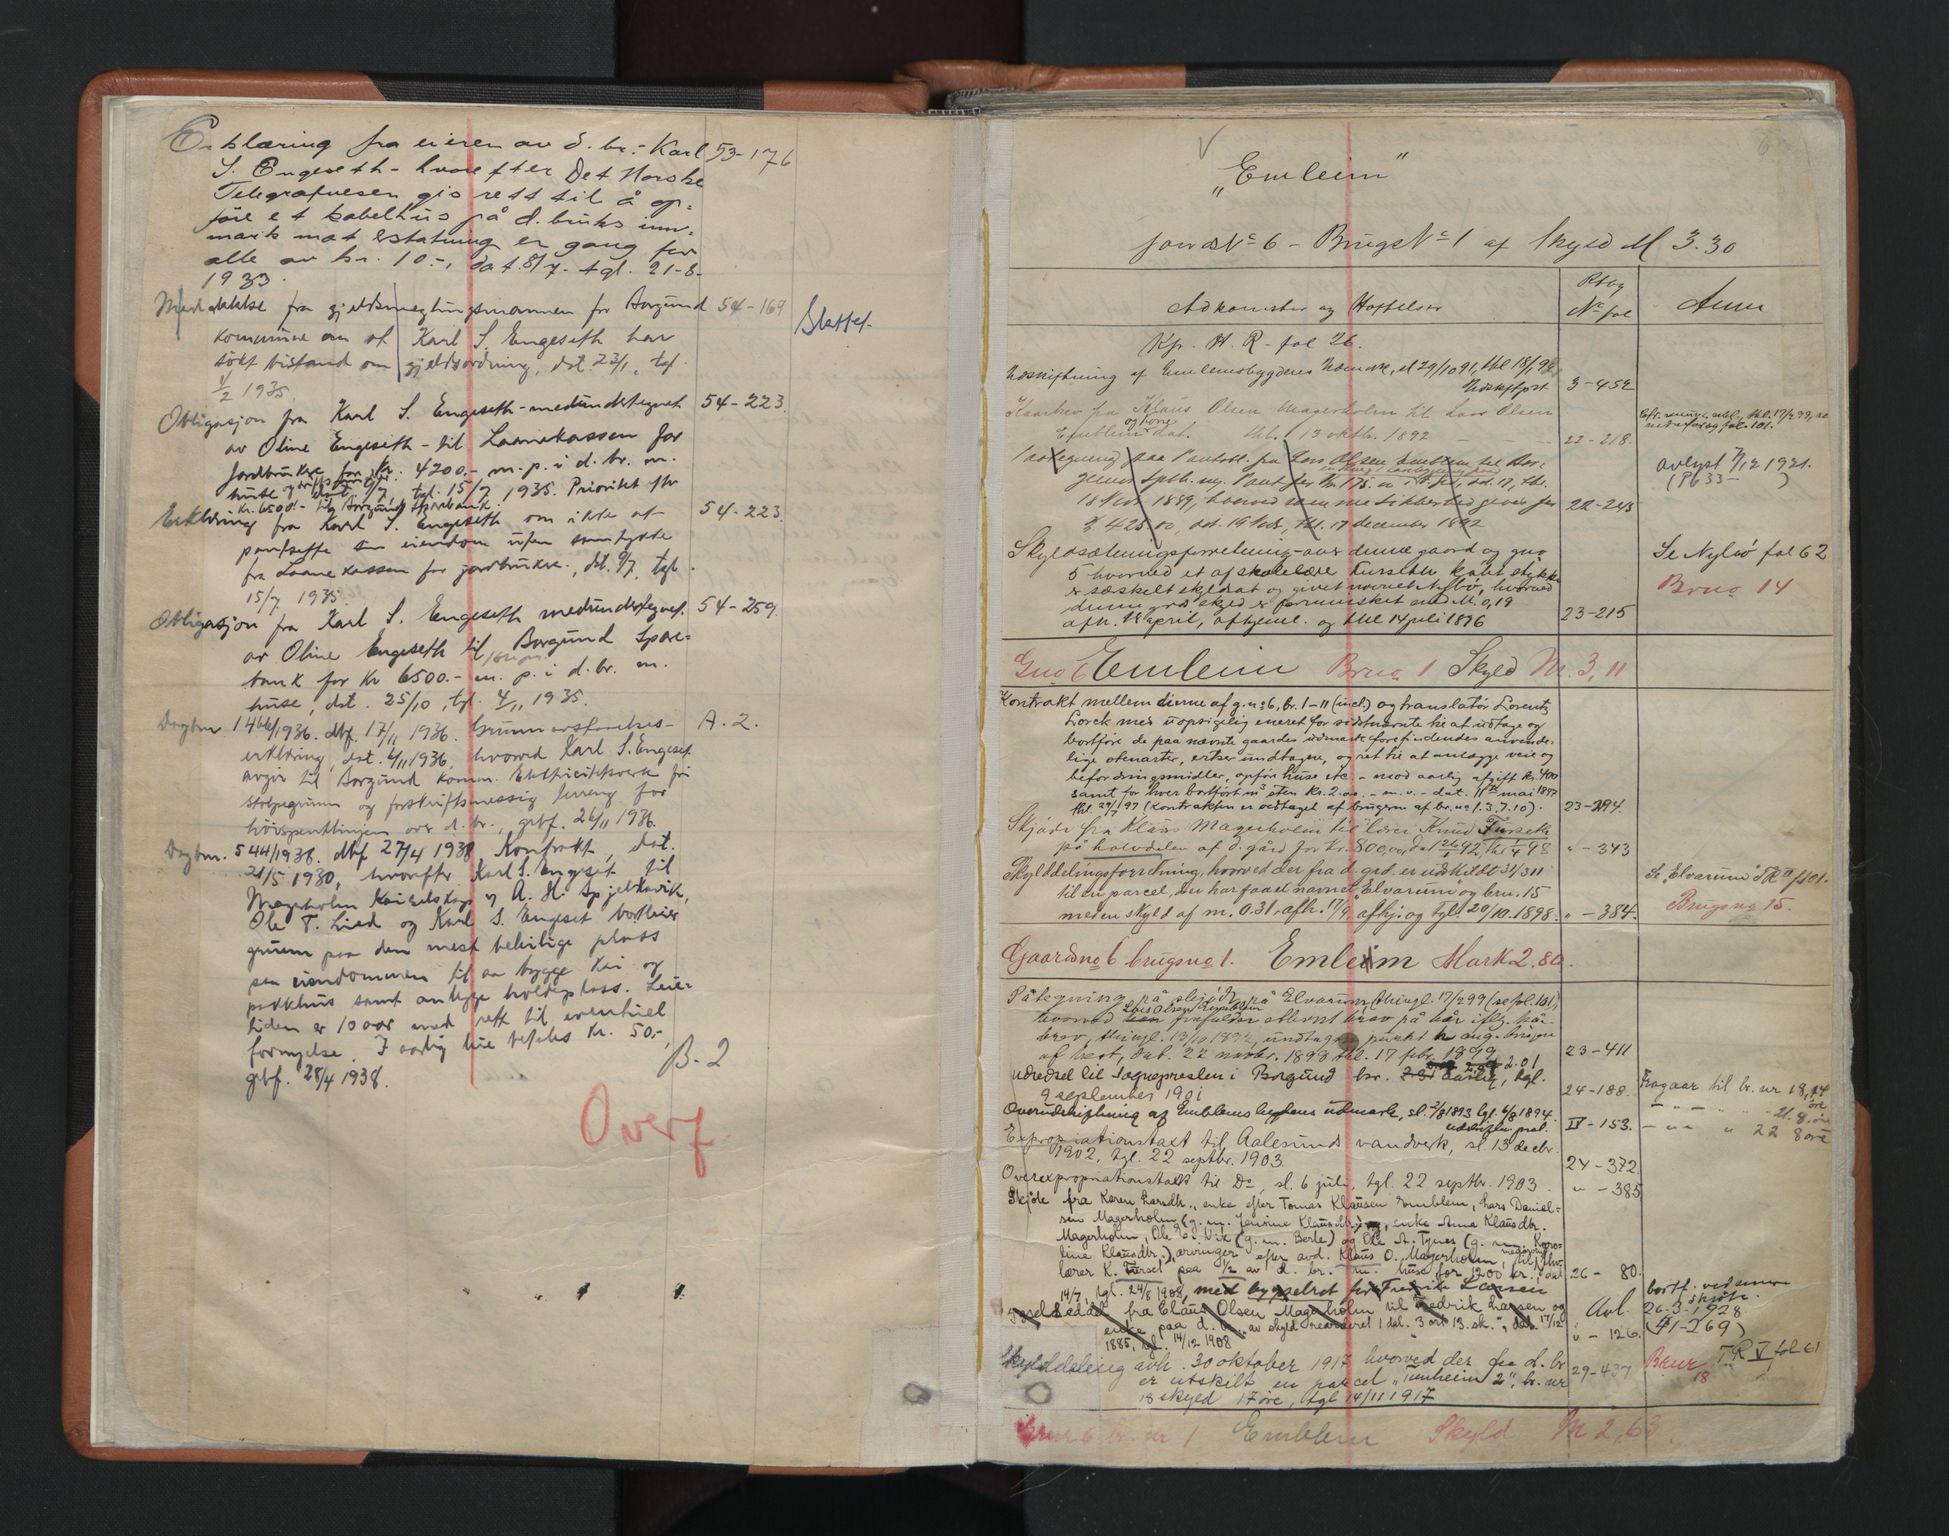 Erklæring fra eieren av d. br.- Karl 53-176
S. Engeseth - hvorefter Det Norske
Telegrafvesen gis rett til å op-
føre et kabelhus på d. bruks inn-
mark mot erstatning en gang for
alle av kr. 10.-, dat. 8/7- tgl. 21-8-
1933.
Meddelelse fra gjeldsmeglingsmannen for Borgund 54-169 Slettet.
kommune om at Karl S. Engeseth har
søkt bistand om gjeldsordning, dat. 23/1, tgl.
1/2 1935.
Obligasjon fra Karl S. Engeseth-medundertegnet 54-223.
av Oline Engeseth - til Laanekassen for
jordbrukere for kr. 4200.- m. p. i d. br. m.
huse og driftsinntekter dat. 9/7, tgl. 15/7 1935. Prioritet eftr
kr. 6500.- til Borgund Sparebank.
Erklæring fra Karl S. Engeseth om ikke at 54-223.
pantsette sin eiendom uten samtykke
fra Laanekassen for jordbrukere, dat. 9/7, tgl.
15/7 1935.
Obligasjon fra Karl S. Engeseth medundertegnet 54-259.
av Oline Engeseth til Borgund Spare-
bank for kr 6500.- m. p. i d. br. m.
huse, dat. 25/10, tgl. 4/11 1935.
Dagbnr 1466/1936. dbf. 17/11 1936. Grunneranerkjennelses- A. 2.
erklæring, dat. 4/11 1936, hvorved Karl S. Engeset
avgir til Borgund komm. Elektricitetsverk fri
stolpegrunn og forskriftsmessig terreng for
høispentlinjen over d. br., grbf. 26/11 1936.
Dagbnr. 544/1938. dbf 27/4 1938 Kontrakt, dat.
21/5 1930, hvorefter Karl S. Engeset til
Magerholm Kaiselskap v/ A. H. Spjelkavik,
Ole T. Lied og Karl S. Engeset bortleier
grunn paa den mest beleilige plass
paa eiendommen til aa bygge kai og
pakkhus samt anlegge holdeplass. Leie-
tiden er 10 aar med rett til eventuel
fornyelse. I aarlig leie betales kr. 50.-,
grbf. 28/4 1938. B. 2
Overf.
6
"Emleim"
Gards No 6 - Brugs No 1 af Skyld M 3.30
Adkomster og Heftelser
Pbog
No fol
Anm
Kp. A. R - fol 26.
Udskiftning af Emlemsbygdens Udmark, sl 29/10 91, thl 18/1 92
Udskiftpr. 3-452
Kaarbrev fra Klaus Olsen Magerholm til Lars Olsen
Emblem og kone dat. thl. 13 oktb. 1892 - - - 22-218
Cfr. mage. abl., thl. 17/2 99, se
nedenfor og fol. 101.
Paategning paa Pantobl. fra Lars Olsen Emblem til Bor-
gunds Spbk.
18 Novb. 1889, hvorved
425.00, dat. 19 Novb., thl. 17 december 1892 22-245
avlyst 7/12 1921.
(P633- )
Skyldsætningsforretning over denne gaard og gno
5 hvorved et af skolelærer Fursether kjøbt stykke
er særskilt skyldsat og givet navnet Nylsø, hvorved
denne grds skyld er forminsket med M. 0,19
afh. 18 april, afhjeml. og thl 14 juli 1896 23-215
Se Nylsø fol 62
Brno 14
Gno 6 Emleim Brno 1 Skyld M. 3,11
Kontrakt mellem eierne af g.no 6, br. 1-11 (incl.) og translatør Lorentz
Lorck med uopsigelig eneret for sidstnævnte til at udtage og
bortføre de paa nævnte gaardes udmark forefindendes anvende-
lige stenarter, ertser undtagen, og ret til at anlægge veie og
befordringsmidler, opføre huse etc. - mod aarlig afgift kr. 400
samt for hver bortført m3 sten kr. 2.00. - m. v. - dat. 11te mai 1897
thl. 29/7 97 (Kontrakten er vedtaget af brugerne af br. no 1. 3. 7. 10). 23-294.
Skjøde fra Klaus Magerholm til lærer Knud Fursethe
på halvdelen af d. gård for Kr. 800,00, dat 26/1 92, thl 1/4 98 " - 343
Skylddelingsforretning, hvorved der fra d. grd. er udskildt
til en parcel, der har faaet navnet "Elvarum" og bru. 15
med en skyld af m. 0.31. afh. 17/9, afhj. og tgl. 20/10. 1898. " - 384.
Se "Elvarum" PR II f 101.
Brugsno 15.
Gaardsno 6 brugsno 1. Emleim Mark 2.80.
Påtegning på skjøde på Elvarum, thingl. 17/2 99 (se fol. 101),
hvorved
brev, thingl. 13/10 1892, undtagen punkt
af hest, dat. 22 novbr. 1898 thl. 17 febr. 1899 23-411
Udredsel til Sognepresten i Borgund kr. 2.01 aarlig, tgl.
9 september 1901 24-188.
Fragaar til br. nr 18, 17 øre
- " - " 21. 8 øre
- " - " 22 8 øre
Overudskiftning af Emblems bygdens udmark, sl. 2/8 1893 tgl. 4/8 1894
Udskiftn. prot. IV-153.
Expropriationstaxt til Aalesunds vandverk, sl. 13 decbr.
1902, tgl. 22 septbr. 1903. 24-372.
Overexpropriationstakt til Do, sl. 6 juli, tgl. 22 septbr. 1903. " - 385
Skjøte fra Karen Larsdtr., enke efter Tomas Klausen Emblem, Lars Daniel-
sen Magerholm (g. m. Jensine Klausdtr.), enke Anna Klausdtr.
Magerholm, Ole E. Vik (g. m. Berte) og Ole A. Tynes (g. m. Karo-
line Klausdtr.) arvinger efter avd. Klaus O. Magerholm, til
lærer K. Furset paa 1/2 av d. br. m. huse for 1200 kr., dat
14/7, tgl. 24/8 1908, med bygselret for Fredrik Larsen 26 - 80.
Bygselseddel fra Claus Olsen Magerholm til Fredrik Larsen og
enke paa d. br. "av skyld nedskrevet 1 dal. 3 ort 13. sk.", dat. 17/12
1885, tgl. 14/12 1908 " - 126.
Avl.
bortf. ved senere
skjøte.
26-3-1928
(41-269)
Skylddeling avh. 30 oktober 1917 hvorved der fra d. br
er utskilt en parcel "Tunheim 2", br. nr
18 skyld 17 øre, tgl 14/11 1917 29-437
Brnr 18 PR V fol 61
Gnr 6 br. nr 1 Emblem Skyld M 2,63.